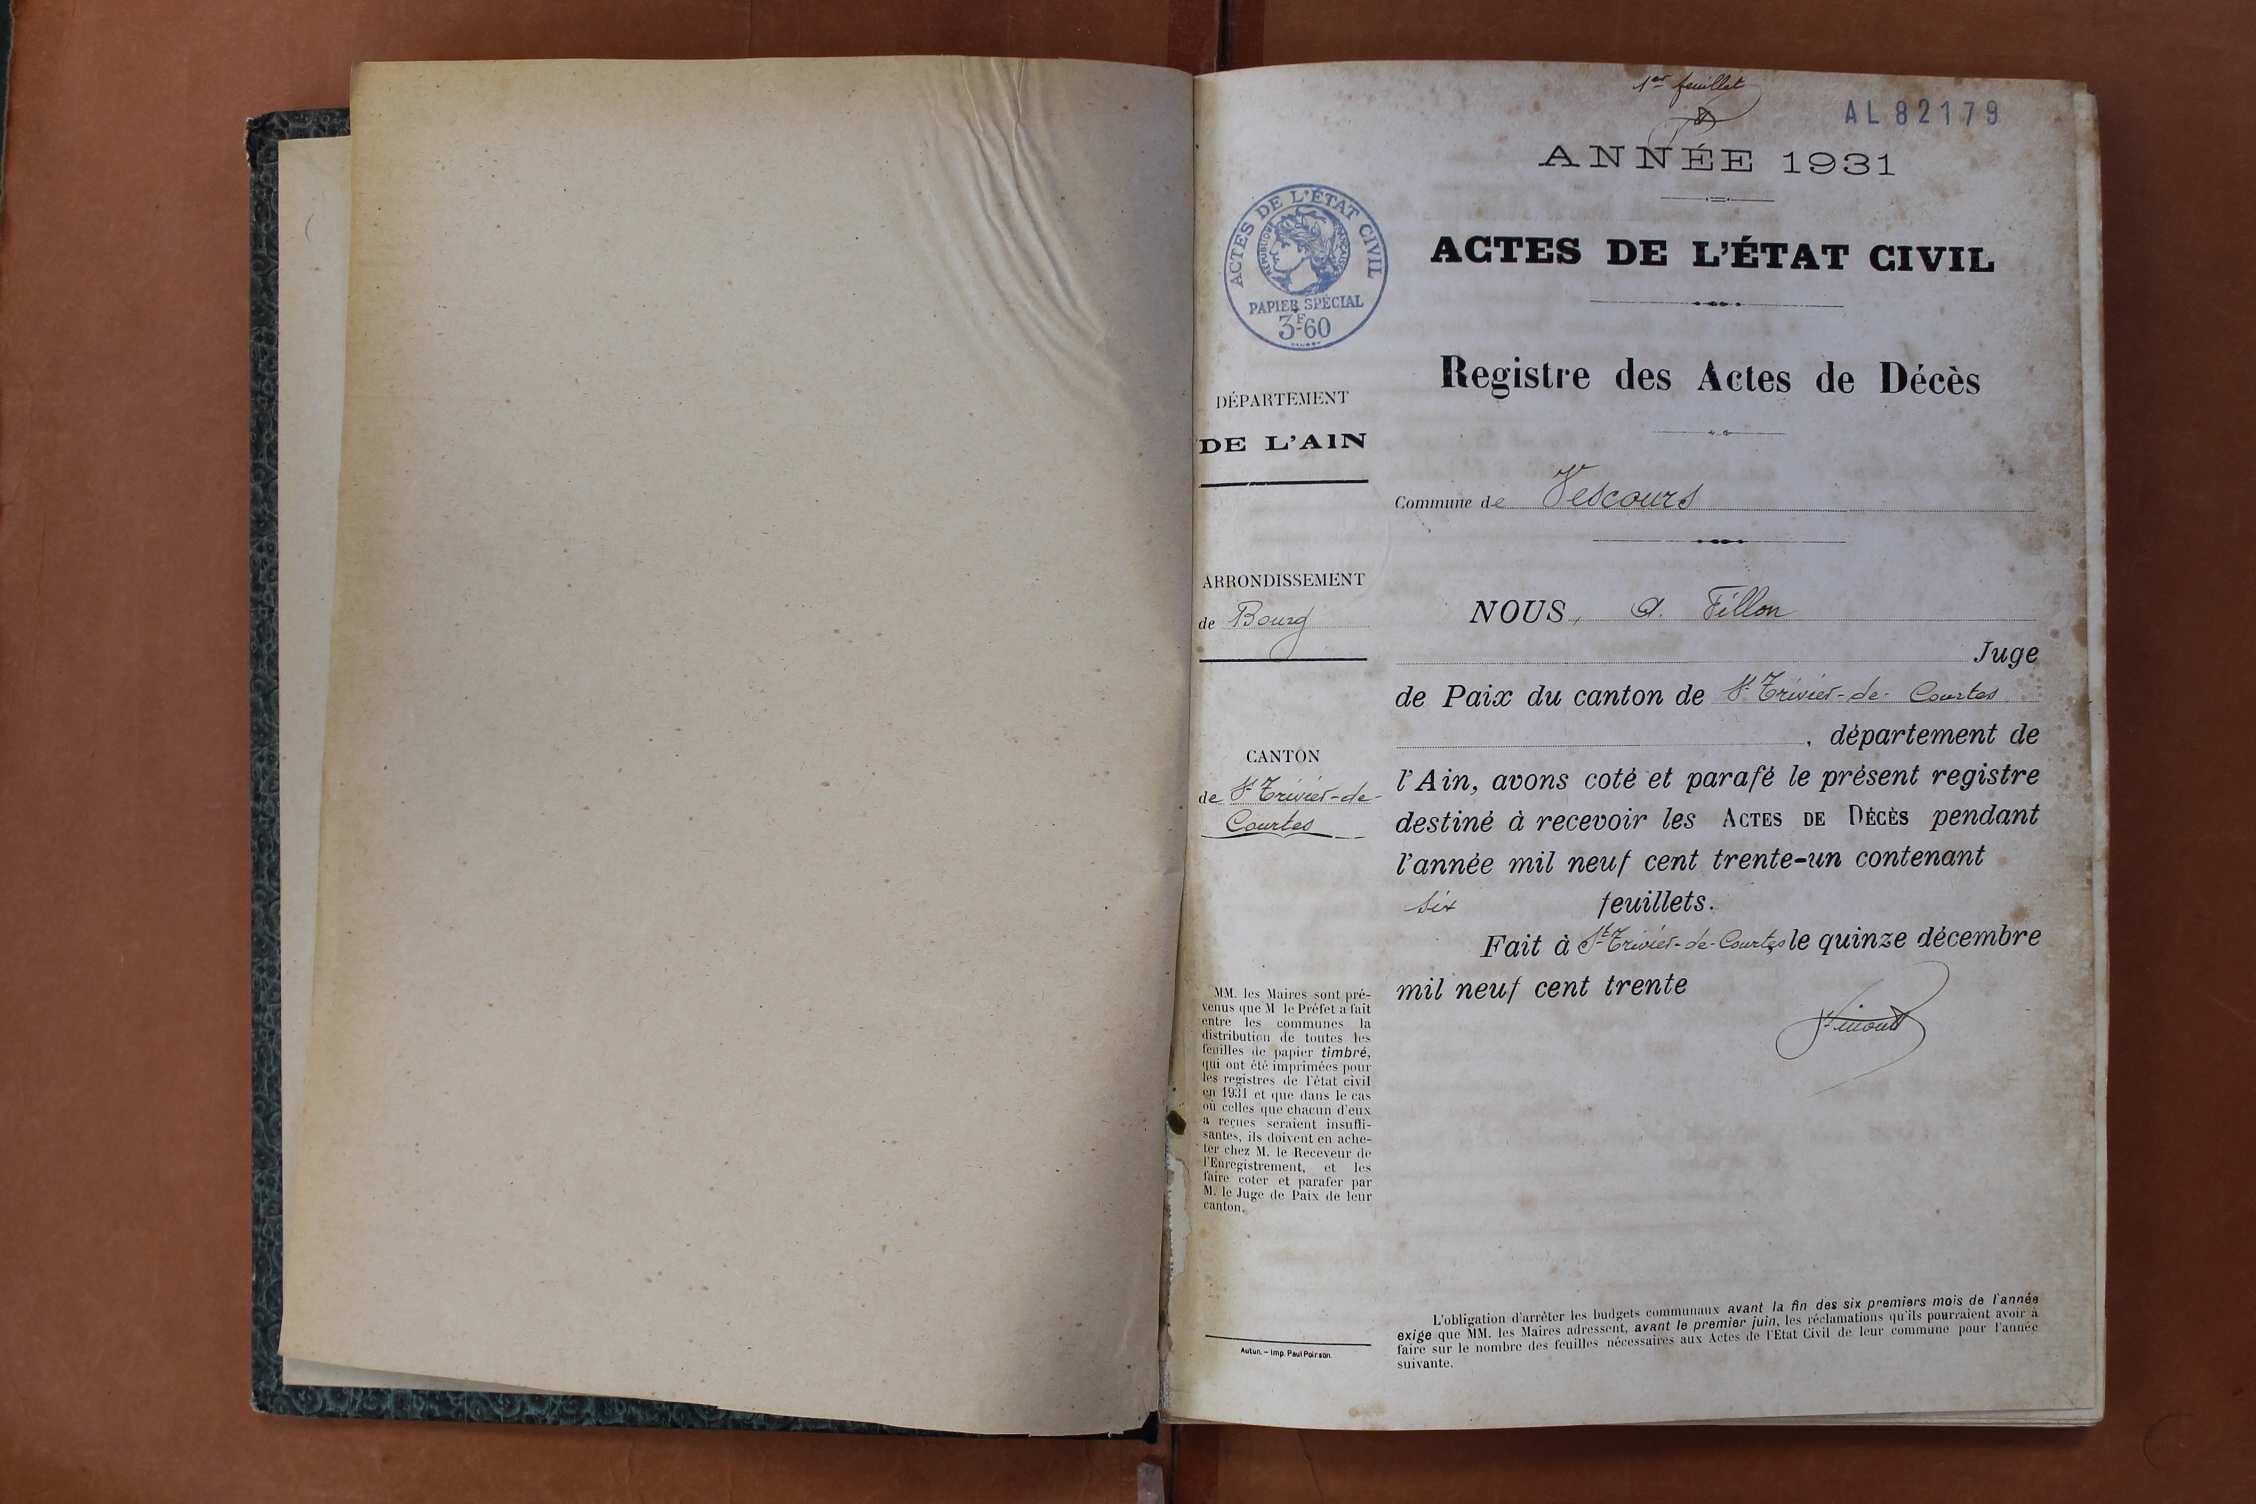 1er feuillet
AL 82179
ANNÉE 1931
ACTES DE L'ÉTAT CIVIL
RÉPUBLIQUE FRANÇAISE
PAPIER SPÉCIAL
3F60
ACTES DE L'ÉTAT CIVIL
Registre des Actes de Décès
DÉPARTEMENT
DE L'AIN
Commune de Vescours
ARRONDISSEMENT
de Bourg
CANTON
de St Trivier-de-
Courtes
NOUS, A. Fillon
Juge
de Paix du canton de St Trivier-de-Courtes
, département de
l'Ain, avons coté et parafé le présent registre
destiné à recevoir les ACTES DE DÉCÈS pendant
l'année mil neuf cent trente-un contenant
six feuillets.
Fait à St Trivier-de-Courtes le quinze décembre
mil neuf cent trente
MM. les Maires sont pré-
venus que M le Préfet a fait
entre les communes la
distribution de toutes les
feuilles de papier timbré,
qui ont été imprimées pour
les registres de l'état civil
en 1931 et que dans le cas
où celles que chacun d'eux
a reçues seraient insuffi-
santes, ils doivent en ache-
ter chez M. le Receveur de
l'Enregistrement, et les
faire coter et parafer par
M. le Juge de Paix de leur
canton.
Autun. – Imp. Paul Poirson.
L'obligation d'arrêter les budgets communaux avant la fin des six premiers mois de l'année
exige que MM. les Maires adressent, avant le premier juin, les réclamations qu'ils pourraient avoir à
faire sur le nombre des feuilles nécessaires aux Actes de l'Etat Civil de leur commune pour l'année
suivante.